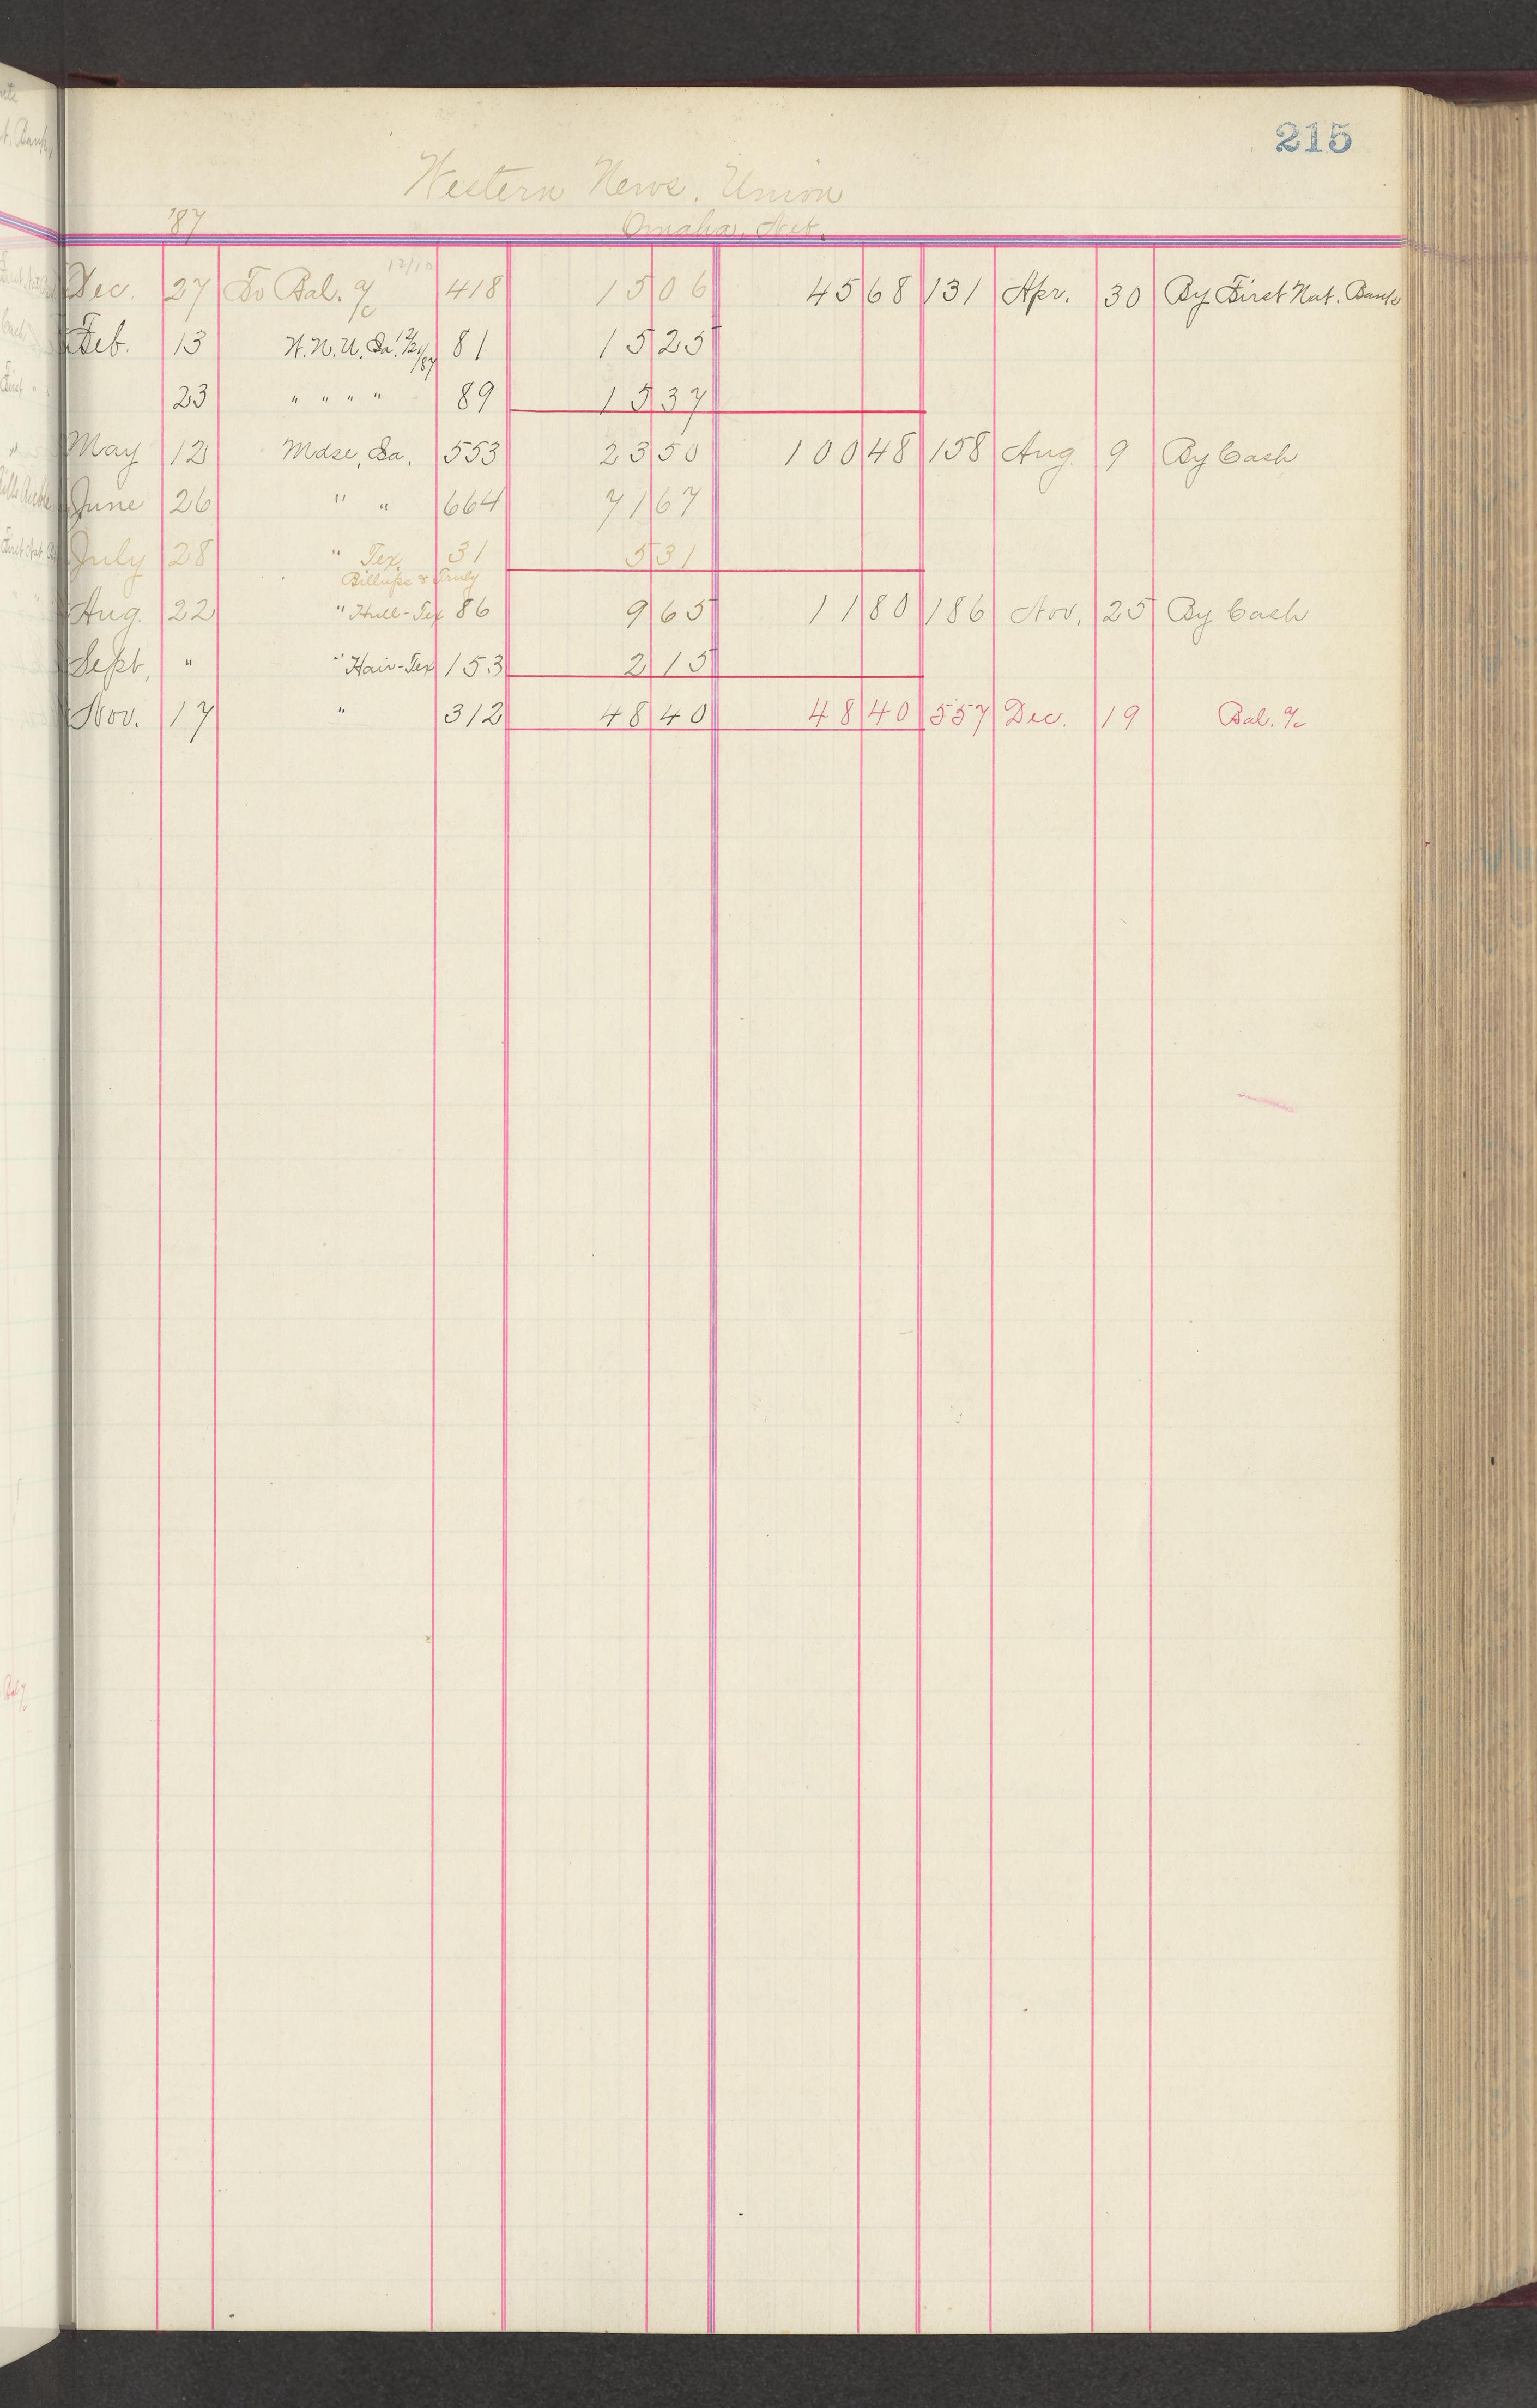 215
Western News. Union
'87 Omaha, Neb.
12/10
Dec. 27 To Bal. a/c 418 15 06 45 68 131 Apr. 30 By First Nat. Bank
Feb. 13 W.N.U. Ia. 12/21/87 81 15 25
23 " " " " 89 15 37
May 12 Mdse, Ia. 553 23 50 100 48 158 Aug. 9 By Cash
June 26 " " 664 71 67
July 28 " Tex. 31 5 31
Billups & Truly
Aug. 22 " Hull-Tex 86 9 65 11 80 186 Nov. 25 By Cash
Sept. " " Hair-Tex 153 2 15
Nov. 17 " 312 48 40 48 40 557 Dec. 19 Bal. a/c